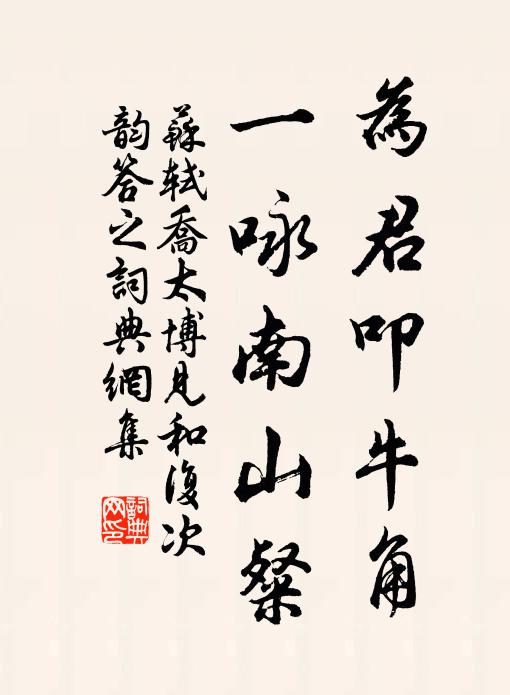 為君叩牛角
一咏南山粲
蘇軾喬太博見和復次
韵答之詞典網集
詞典
网印